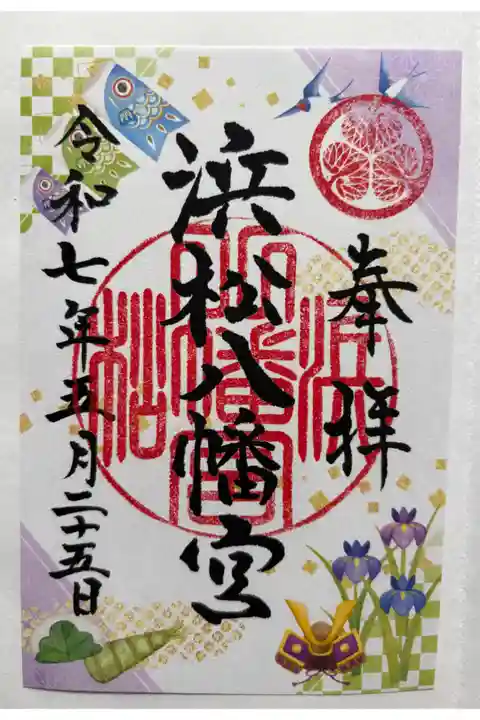 奉拝
浜松八幡宮
令和七年五月二十五日